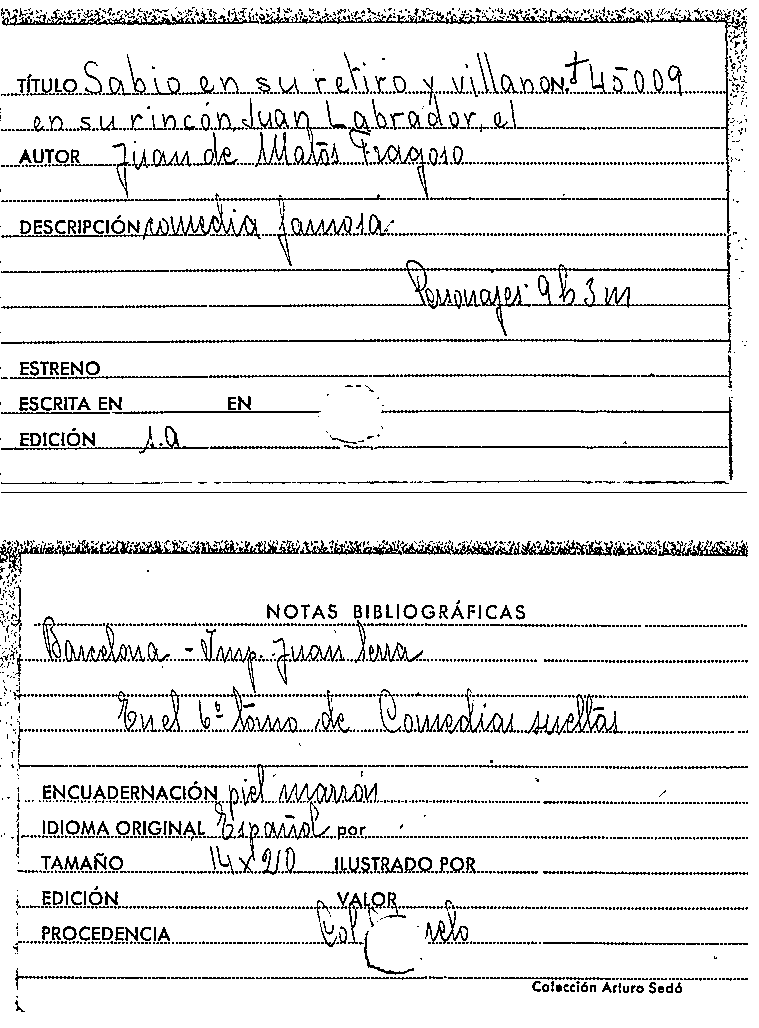 TÍTULO Sabio en su retiro y villano N.º 45009
en su rincón, Juan Labrador, el
AUTOR Juan de Matos Fragoso
DESCRIPCIÓN comedia famosa
Personajes: 9 h 3 m
ESTRENO
ESCRITA EN EN
EDICIÓN s.a
NOTAS BIBLIOGRÁFICAS
Barcelona - Imp. Juan Serra
En el 6º tomo de Comedias sueltas
ENCUADERNACIÓN piel marrón
IDIOMA ORIGINAL Español por
TAMAÑO 14 x 210 ILUSTRADO POR
EDICIÓN VALOR
PROCEDENCIA Col
Colección Arturo Sedó